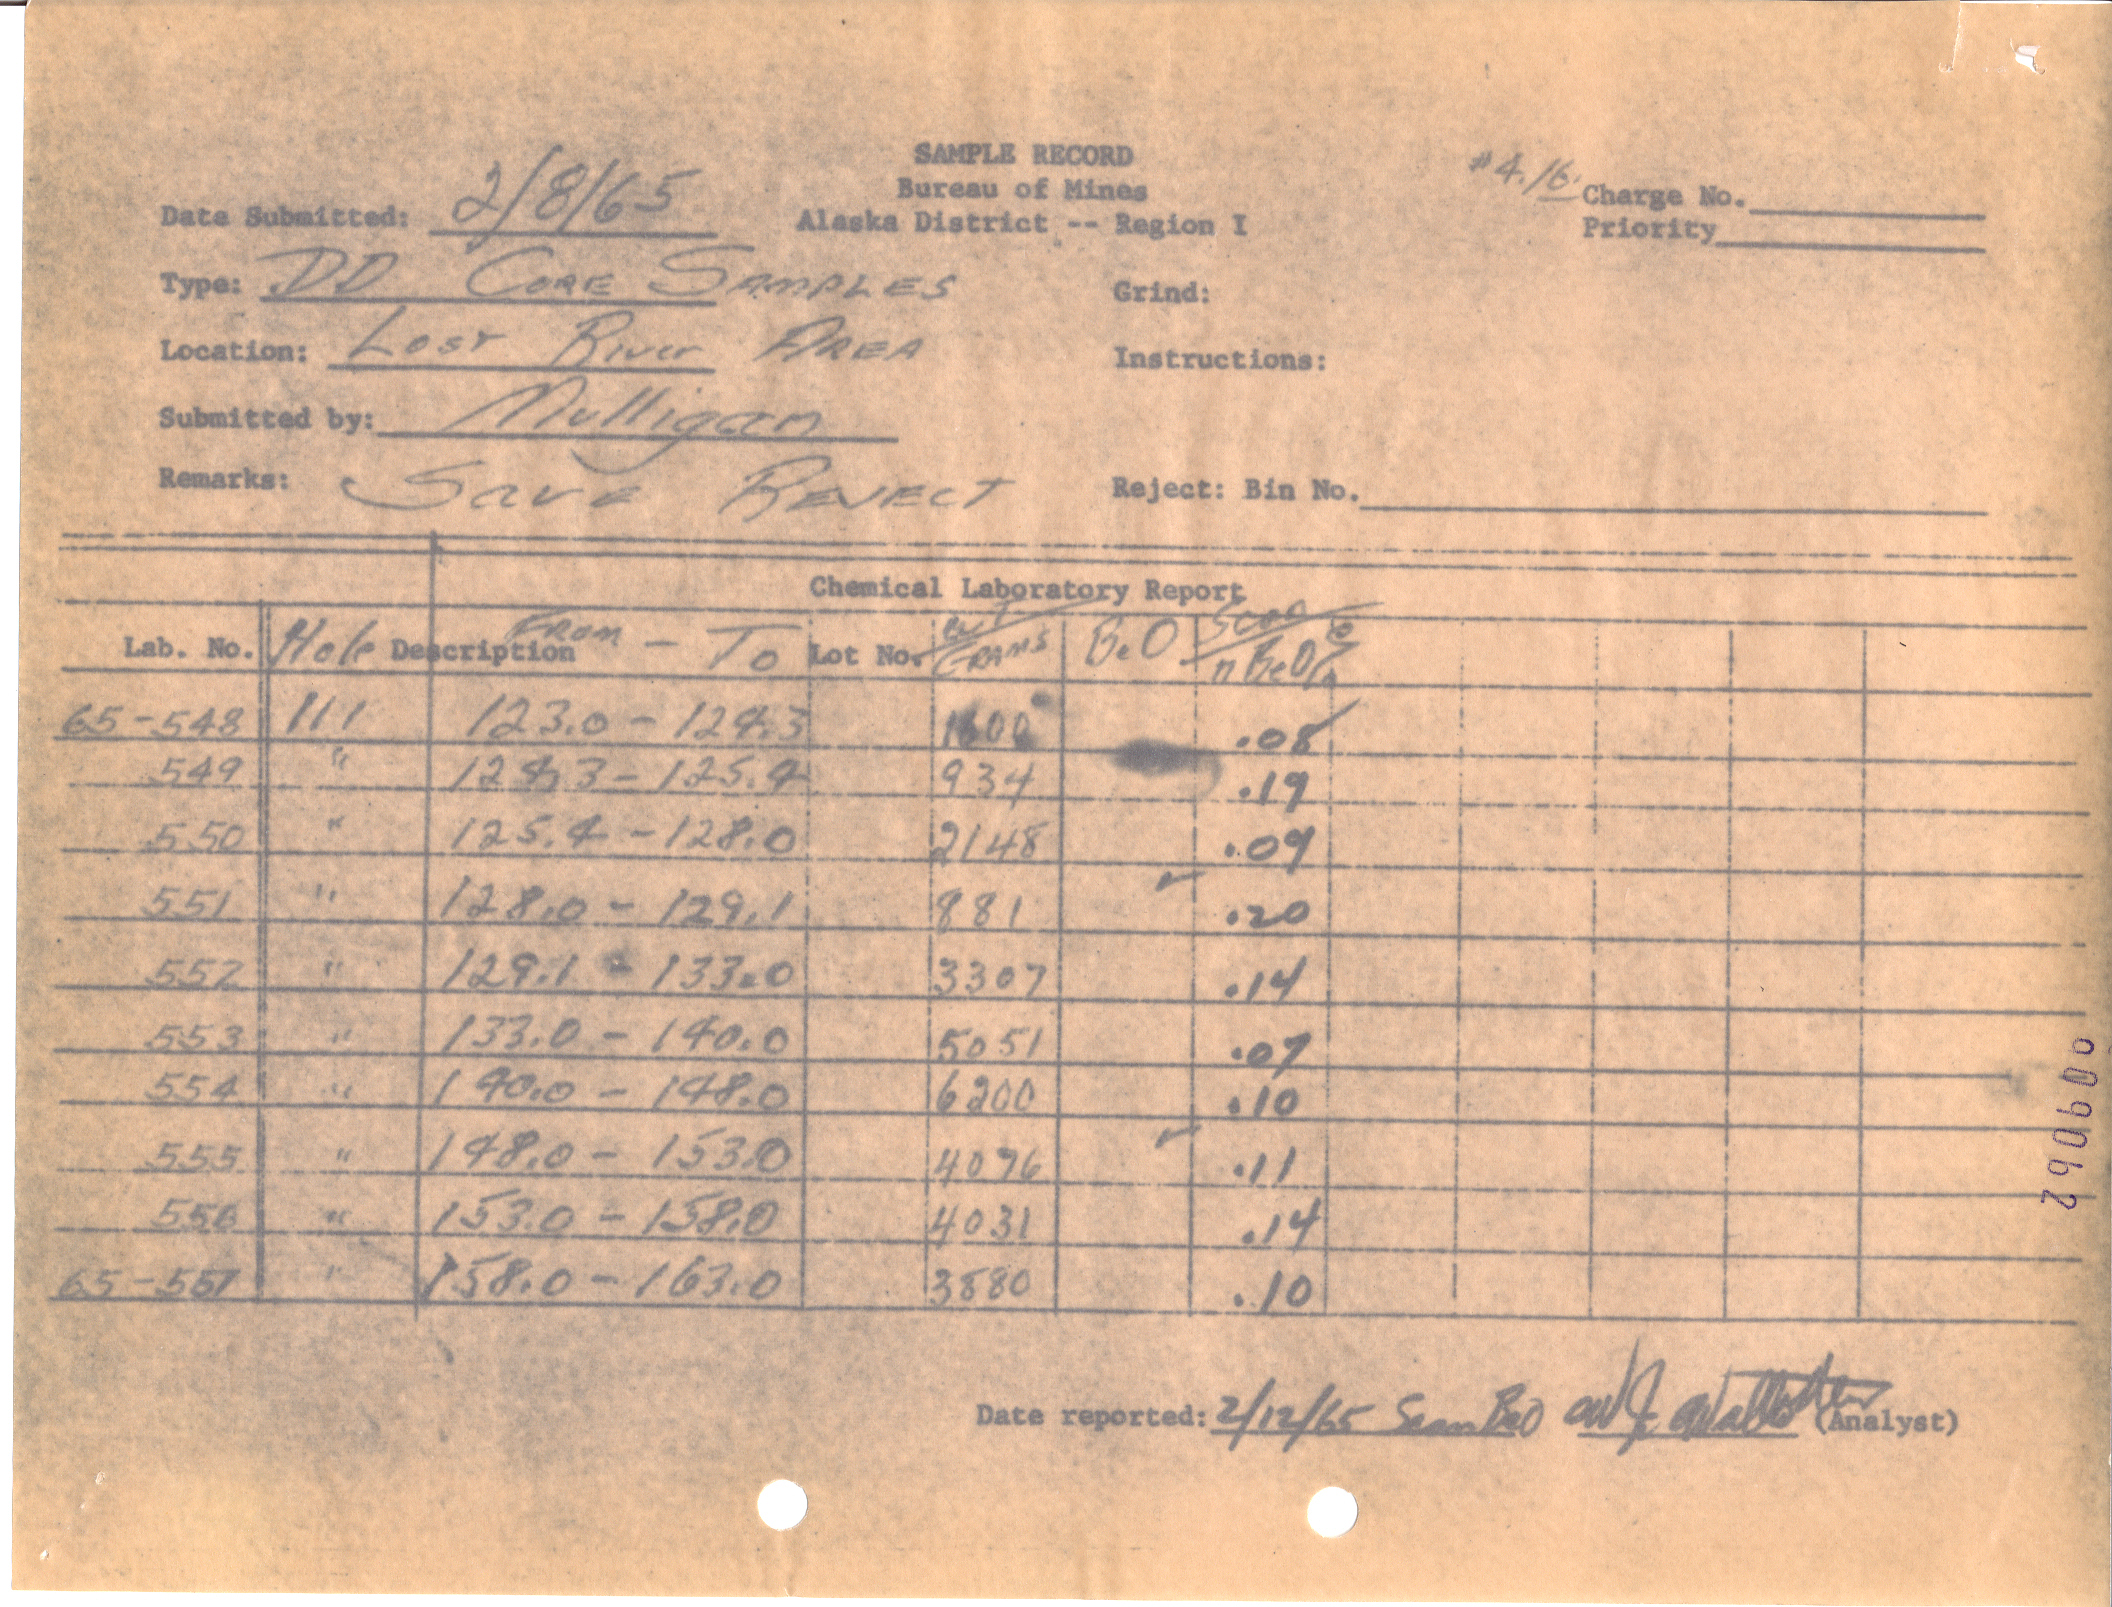 SAMPLE RECORD
Bureau of Mines
Alaska District -- Region I
#4.16 Charge No.
Priority
Date Submitted: 2/8/65
Type: DD CORE SAMPLES
Grind:
Location: Lost River AREA
Instructions:
Submitted by: Mulligan
Remarks: Save REJECT
Reject: Bin No.
Chemical Laboratory Report
Lab. No. Hole Description FROM - To Lot No. wt GRAMS BeO Scan n BeO %
65-548 111 123.0 - 124.3 1600 .08
549 " 124.3 - 125.4 934 .19
550 " 125.4 - 128.0 2148 .09
551 " 128.0 - 129.1 881 ✓ .20
552 " 129.1 - 133.0 3307 .14
553 " 133.0 - 140.0 5051 .07
554 " 140.0 - 148.0 6200 .10
555 " 148.0 - 153.0 4096 ✓ .11
556 " 153.0 - 158.0 4031 .14
65-557 " 158.0 - 163.0 3880 .10
Date reported: 2/12/65 Scan BeO (Analyst)
009062